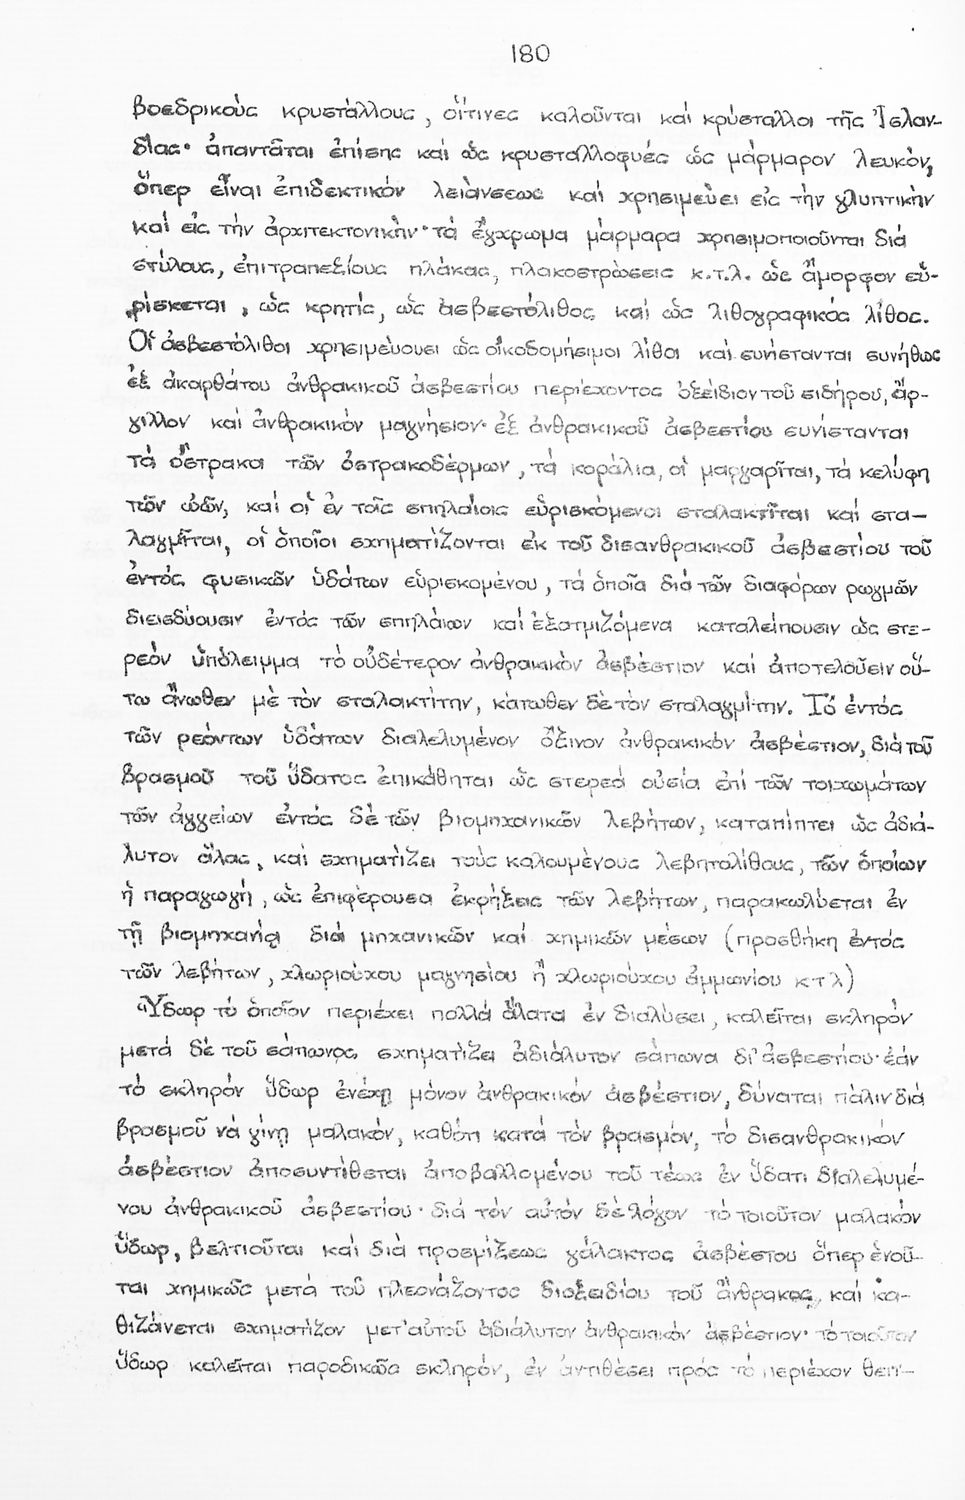 180
βοεδρικοὺς κρυστάλλους, οἵτινες καλοῦνται καί κρύσταλλοι τῆς Ἰσλαν-
δίας· ἀπαντᾶται ἐπίσης καί ὡς κρυσταλλοφυές ὡς μάρμαρον λευκόν,
ὅπερ εἶναι ἐπιδεκτικόν λειάνσεως καί χρησιμεύει εἰς τήν γλυπτικήν
καί εἰς τήν ἀρχιτεκτονικήν· τά ἔγχρωμα μάρμαρα χρησιμοποιοῦνται διά
στύλους, ἐπιτραπεζίους πλάκας, πλακοστρώσεις κ.τ.λ. ὡς ἄμορφον εὑ-
ρίσκεται, ὡς κρητίς, ὡς ἀσβεστόλιθος καί ὡς λιθογραφικός λίθος.
Οἱ ἀσβεστόλιθοι χρησιμεύουσι ὡς οἰκοδομήσιμοι λίθοι καί συνίστανται συνήθως
ἐξ ἀκαρθάτου ἀνθρακικοῦ ἀσβεστίου περιέχοντος ὀξείδιον τοῦ σιδήρου, ἄρ-
γιλλον καί ἀνθρακικόν μαγνήσιον· ἐξ ἀνθρακικοῦ ἀσβεστίου συνίστανται
τά ὄστρακα τῶν ὀστρακοδέρμων, τά κοράλια, οἱ μαργαρῖται, τά κελύφη
τῶν ὠῶν, καί οἱ ἐν τοῖς σπηλαίοις εὑρισκόμενοι σταλακτῖται καί στα-
λαγμῖται, οἱ ὁποῖοι σχηματίζονται ἐκ τοῦ δισανθρακικοῦ ἀσβεστίου τοῦ
ἐντός φυσικῶν ὑδάτων εὑρισκομένου, τά ὁποῖα διά τῶν διαφόρων ρωγμῶν
διεισδύουσιν ἐντός τῶν σπηλαίων καί ἐξατμιζόμενα καταλείπουσιν ὡς στε-
ρεόν ὑπόλειμμα τό οὐδέτερον ἀνθρακικόν ἀσβέστιον καί ἀποτελοῦσιν οὕ-
τω ἄνωθεν μέ τόν σταλακτίτην, κάτωθεν δέ τόν σταλαγμίτην. Τό ἐντός
τῶν ρεόντων ὑδάτων διαλελυμένον ὄξινον ἀνθρακικόν ἀσβέστιον, διά τοῦ
βρασμοῦ τοῦ ὕδατος ἐπικάθηται ὡς στερεά οὐσία ἐπί τῶν τοιχωμάτων
τῶν ἀγγείων ἐντός δέ τῶν βιομηχανικῶν λεβήτων, καταπίπτει ὡς ἀδιά-
λυτον ἅλας, καί σχηματίζει τούς καλουμένους λεβητολίθους, τῶν ὁποίων
ἡ παραγωγή, ὡς ἐπιφέρουσα ἐκρήξεις τῶν λεβήτων, παρακωλύεται ἐν
τῇ βιομηχανίᾳ διά μηχανικῶν καί χημικῶν μέσων (προσθήκη ἐντός
τῶν λεβήτων, χλωριούχου μαγνησίου ἤ χλωριούχου ἀμμωνίου κ τ λ)
Ὕδωρ τό ὁποῖον περιέχει πολλά ἅλατα ἐν διαλύσει, καλεῖται σκληρόν
μετά δέ τοῦ σάπωνος σχηματίζει ἀδιάλυτον σάπωνα δι' ἀσβεστίου· ἐάν
τό σκληρόν ὕδωρ ἐνέχῃ μόνον ἀνθρακικόν ἀσβέστιον, δύναται πάλιν διά
βρασμοῦ νά γίνῃ μαλακόν, καθότι κατά τόν βρασμόν, τό δισανθρακικόν
ἀσβέστιον ἀποσυντίθεται ἀποβαλλομένου τοῦ τέως ἐν ὕδατι διαλελυμέ-
νου ἀνθρακικοῦ ἀσβεστίου· διά τόν αὐτόν δέ λόγον τό τοιοῦτον μαλακόν
ὕδωρ, βελτιοῦται καί διά προσμίξεως γάλακτος ἀσβέστου ὅπερ ἑνοῦ-
ται χημικῶς μετά τοῦ πλεονάζοντος διοξειδίου τοῦ ἄνθρακος, καί κα-
θιζάνεται σχηματίζον μετ' αὐτοῦ ἀδιάλυτον ἀνθρακικόν ἀσβέστιον· τό τοιοῦτον
ὕδωρ καλεῖται παροδικῶς σκληρόν, ἐν ἀντιθέσει πρός τό περιέχον θειι-